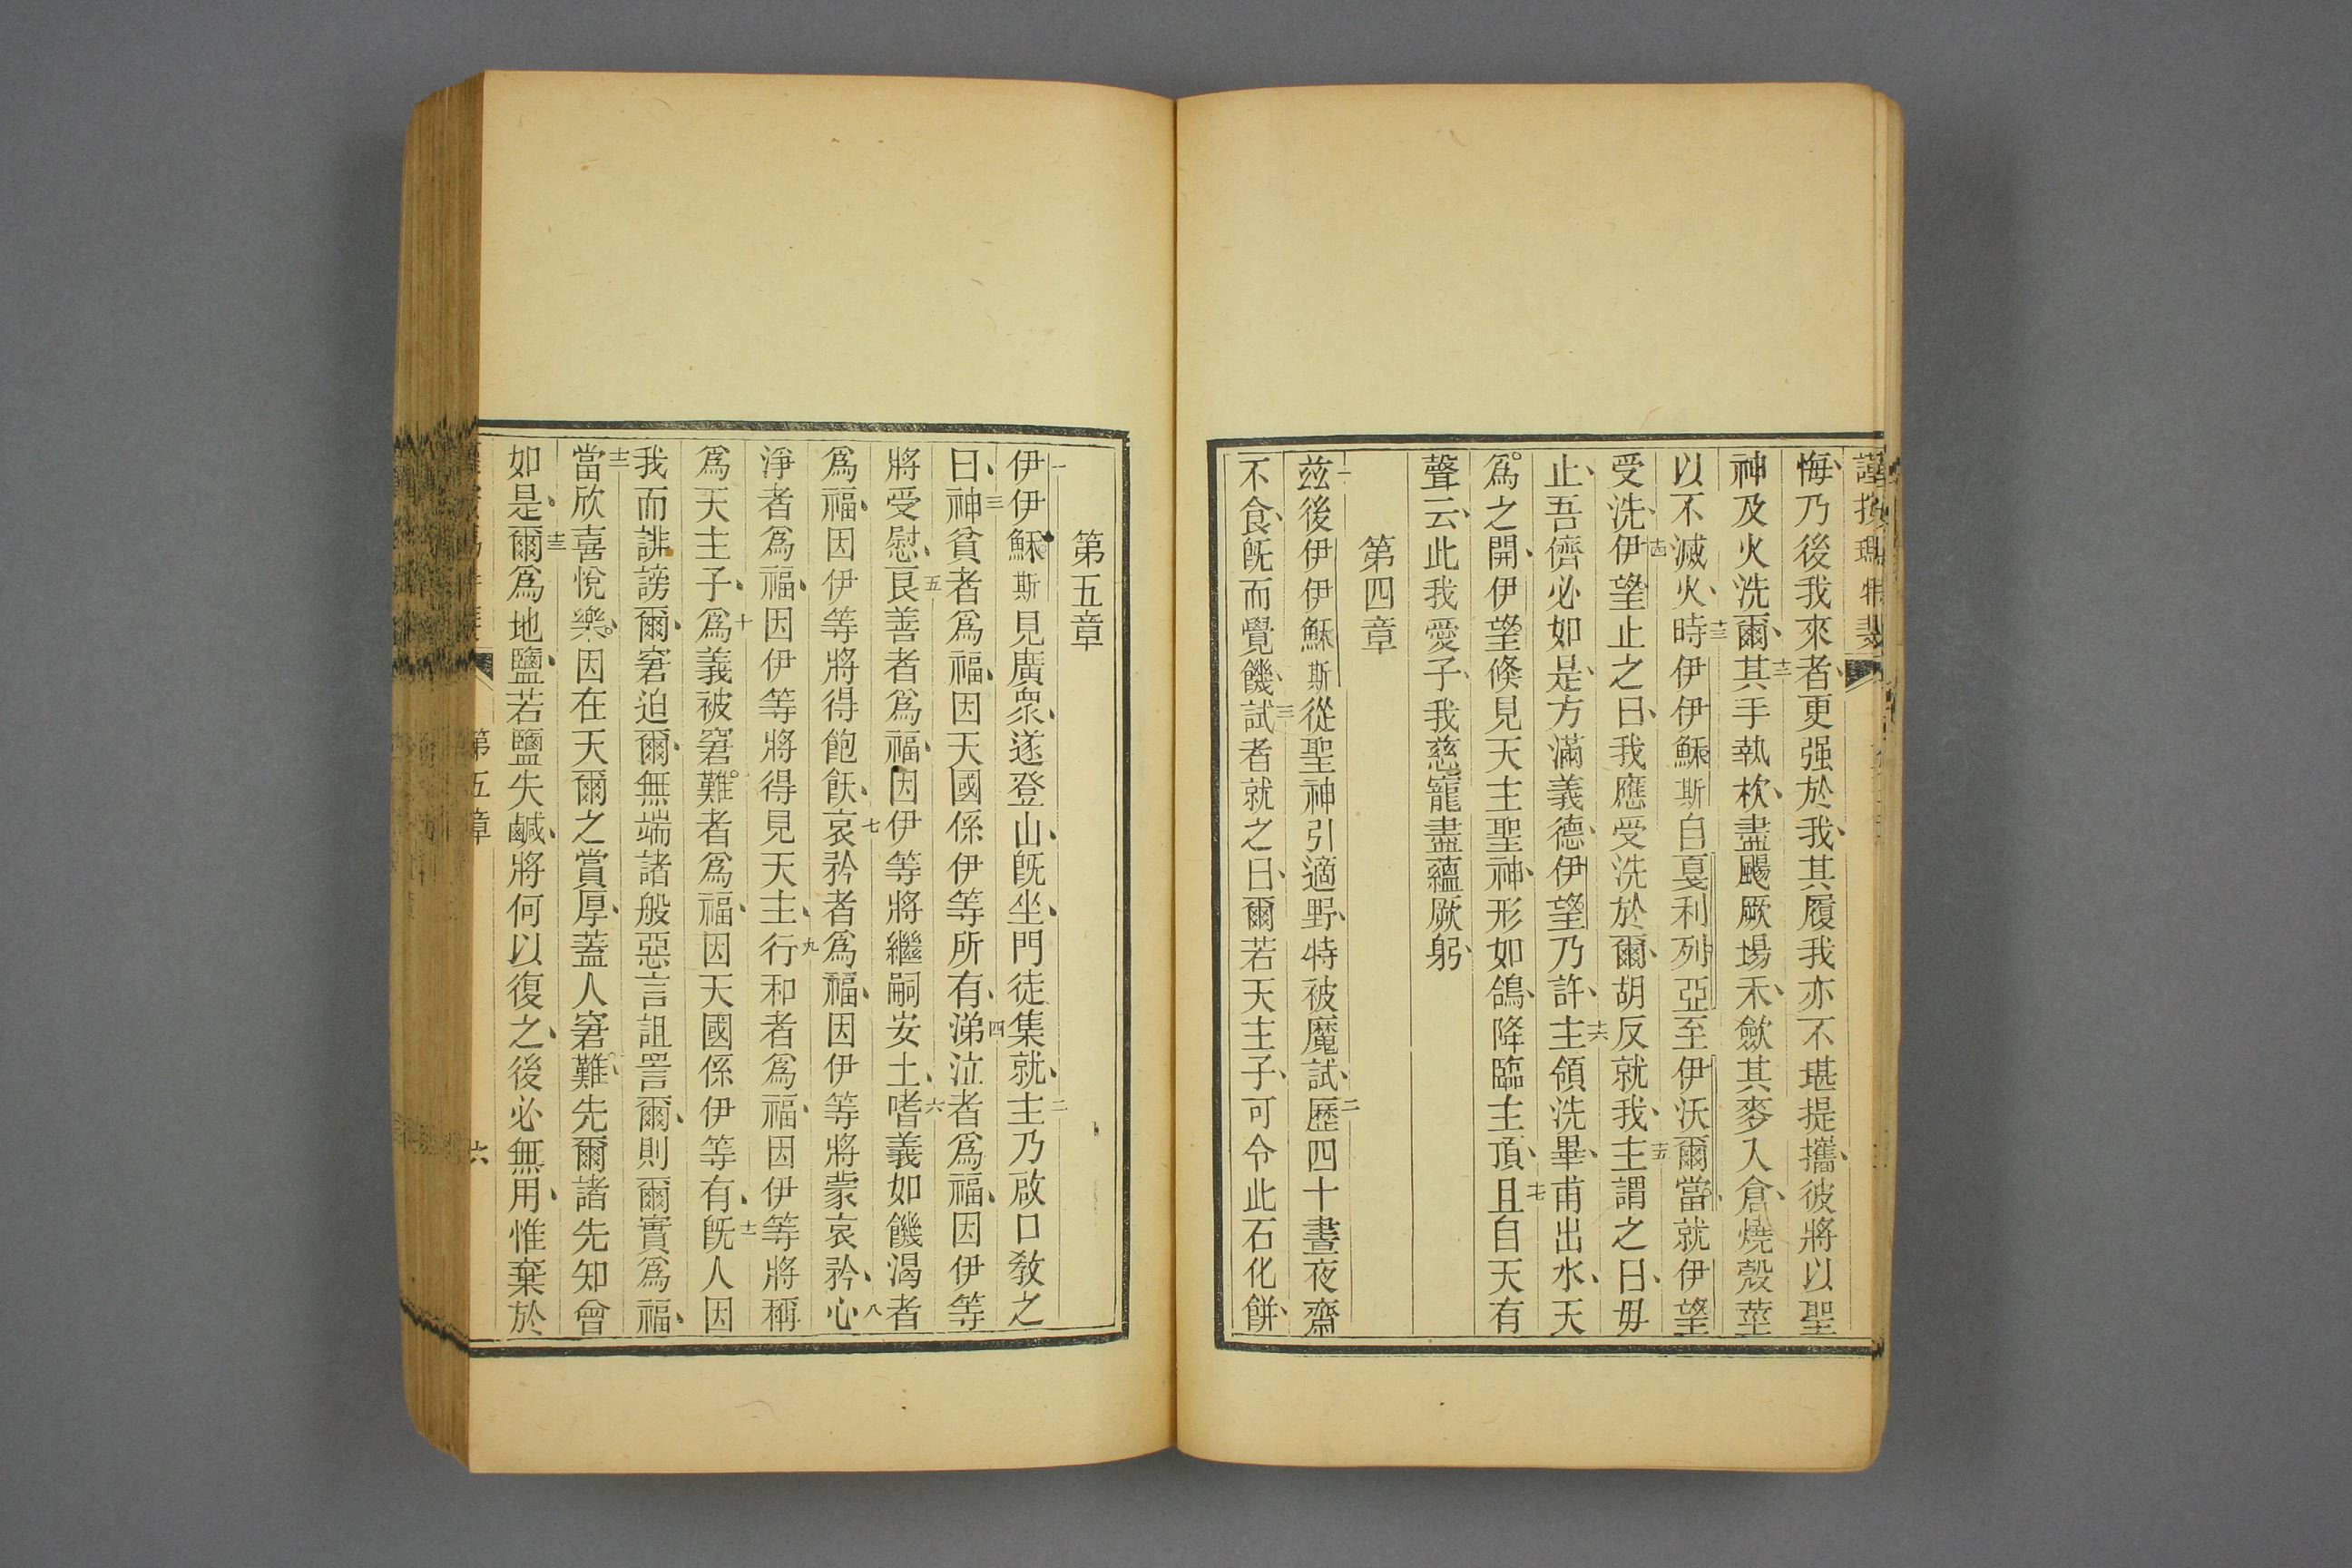 悔、乃後我來者、更强於我、其履我亦不堪提攜、彼將以聖
神及火洗爾、十二其手執杴、盡颺厥場禾、斂其麥入倉、燒殼莖
以不滅火、十三時伊伊穌斯自戛利列亞至伊沃爾當、就伊望
受洗、十四伊望止之曰、我應受洗於爾、胡反就我、十五主謂之曰、毋
止、吾儕必如是、方滿義德、伊望乃許、十六主領洗畢、甫出水、天
爲之開、伊望倐見天主聖神、形如鴿、降臨主頂、十七且自天有
聲云、此我愛子、我慈寵盡蘊厥躬、
第四章
一兹後伊伊穌斯從聖神引適野、特被魔試、二歷四十晝夜齋
不食、旣而覺饑、三試者就之曰、爾若天主子、可令此石化餅、
第五章
一伊伊穌斯見廣衆、遂登山、旣坐、門徒集就、二主乃啟口敎之
曰、三神貧者爲福、因天國係伊等所有、四涕泣者爲福、因伊等
將受慰、五良善者爲福、因伊等將繼嗣安土、六嗜義如饑渴者
爲福、因伊等將得飽飫、七哀矜者爲福、因伊等將蒙哀矜、八心
淨者爲福、因伊等將得見天主、九行和者爲福、因伊等將稱
爲天主子、十爲義被窘難者爲福、因天國係伊等有、十一旣人因
我而誹謗爾、窘迫爾、無端諸般惡言詛詈爾、則爾實爲福、
十二當欣喜悅樂、因在天爾之賞厚、蓋人窘難先爾諸先知曾
如是、十三爾爲地鹽、若鹽失鹹、將何以復之、後必無用、惟棄於
第五章
六